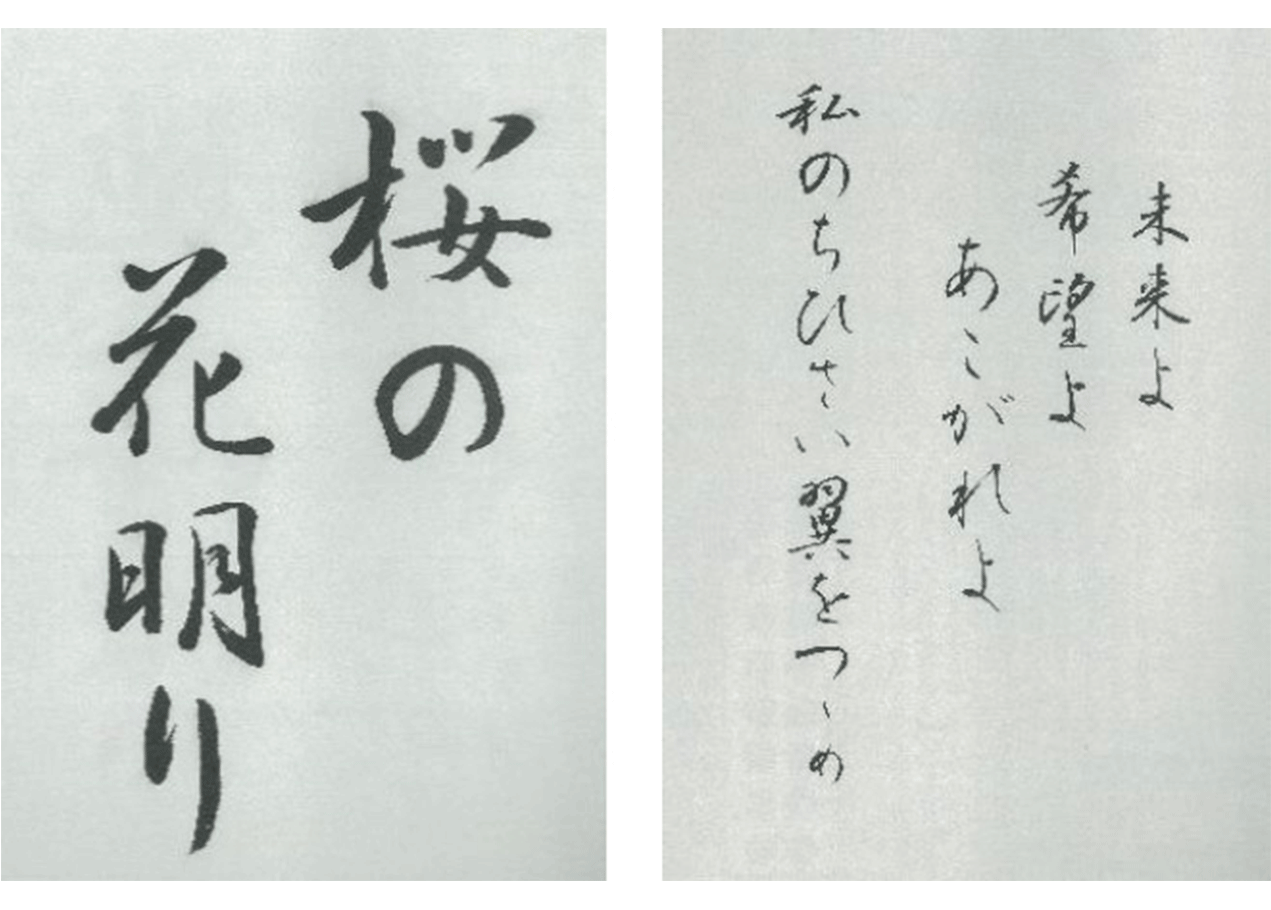 未来よ
希望よ
あこがれよ
私のちひさい翼をつゝめ
桜の
花明り